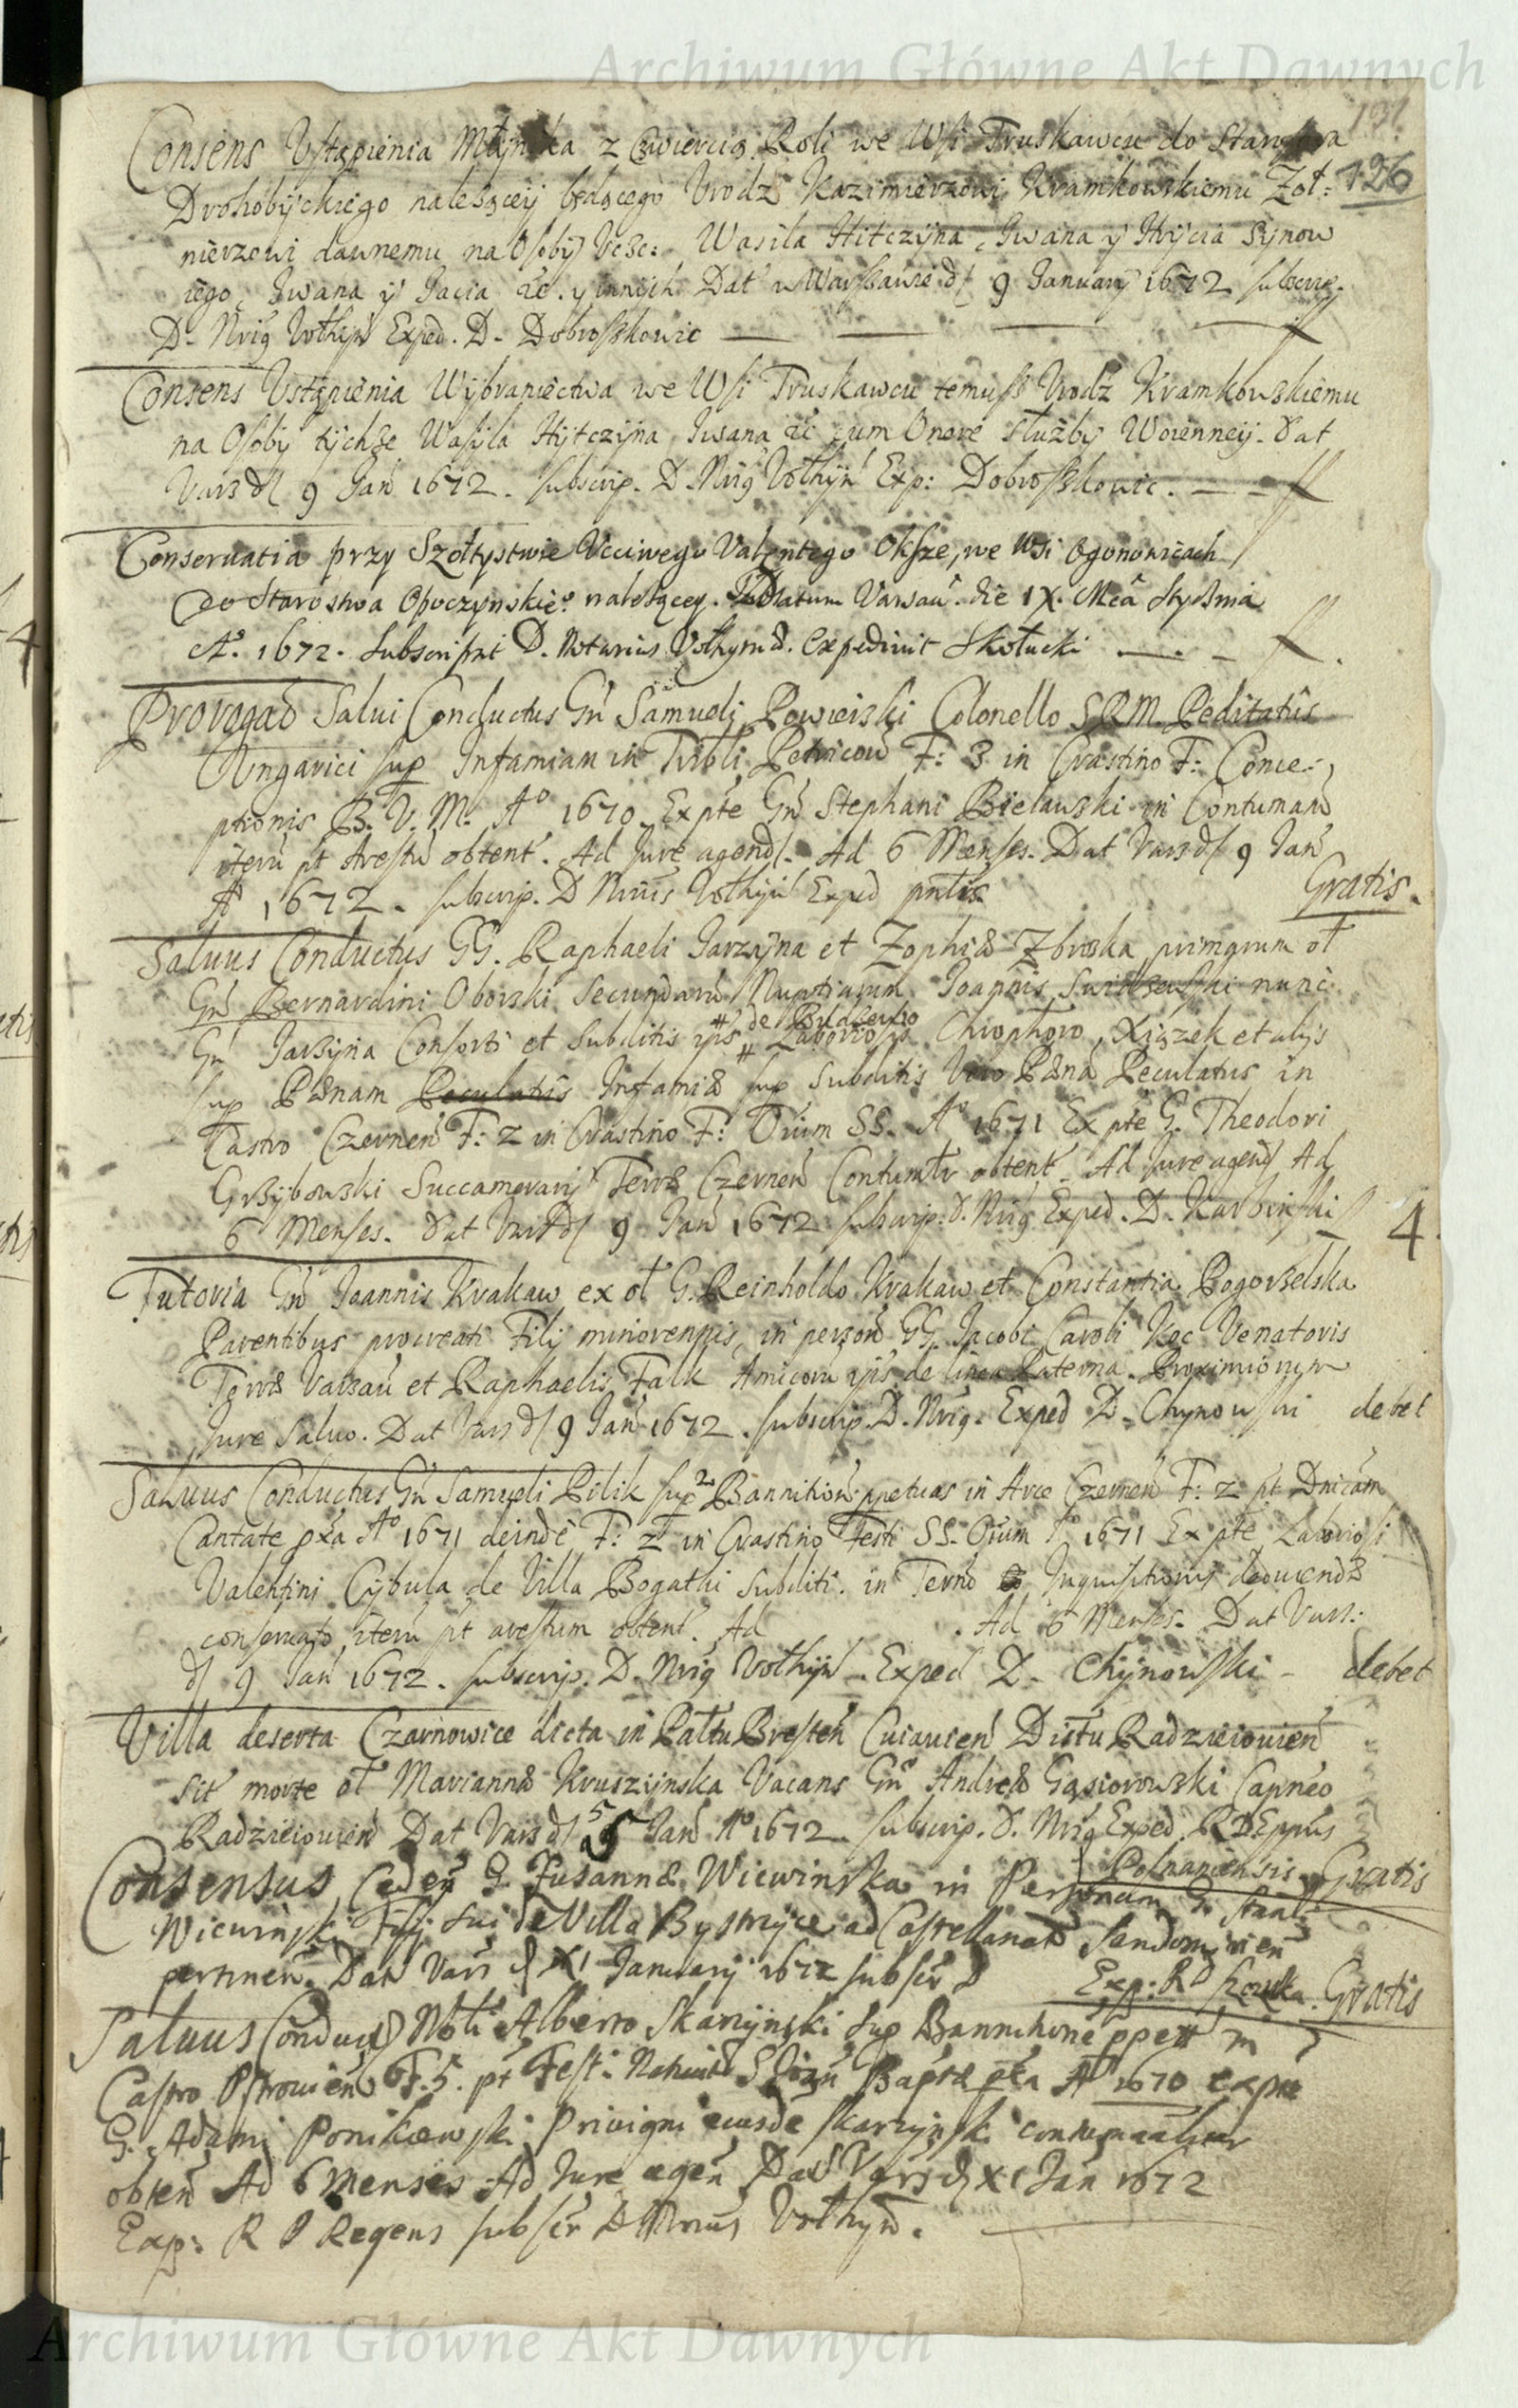 Archiwum Główne Akt Dawnych
131
126
Consens Ustąpienia Młynka z Cwiercią Roli we Wsi Truskawcu do Starostwa
Drohobyckiego należącey będącego Urodz Kazimierzowi Kramkowskiemu Zoł:
nierzowi dawnemu na Osoby Uczc: Wasila Hitczyna, Iwana y Hrycia Synow
iego, Iwana y Jacia &c. y innych Dat w Warszawie d 9 January 1672 subscrip.
D. Nrig Vołhyn Exped. D. Dobroszkowic
Consens Ustąpienia Wybraniectwa we Wsi Truskawcu temusz Urodz Kramkowskiemu
na Osoby tychże Wasila Hytczyna Iwana &c cum Onere służby Woienney. Dat
Vars d 9 Jan 1672. subscrip. D. Nrig Vołhyn Exp: Dobroszkowic.
Conservatia przy Szołtystwie Uciwego Valentego Oksze, we Wsi Ogonowicach
do Starostwa Opoczynskie° należącey. Datum Varsau. die IX. Mca Stycznia
A°. 1672. Subscripsit D. Notarius Vołhyn d. Expedivit Skołucki
Prorogao Salui Conductus Gn Samueli Powierski Colonello SRM. Peditatus
Ungarici sup Infamiam in Tribli Petricou F: 3 in Crastino F: Conce-
ptionis B. V. M. A° 1670 Expte Gn Stephani Bielawski in Contumam
iteru pt Arestu obtent. Ad Jure agend. Ad 6 Menses. Dat Vars d 9 Jan
A° 1672. subscrip. D Nrius Vołhyn Exped pntis. Gratis.
Saluus Conductus GG. Raphaeli Jarzyna et Zophiæ Zbroska primarum ol
Gn Bernardini Oborski Secundaru Nuptiarum Joannis nunc
Gn Jarzyna Consorti et Subditis ips # de Laborioso Chrophoro, Xiązek et alys
sup Pænam Peculatus Infamiæ sup Subditis Vero Pæna Peculatus in
Castro Czernen F: 2 in Crastino F: Oium SS. A° 1671 Ex pte G. Theodori
Grzybowski Succamerarij Terræ Czernen Contumlr obtent. Ad Jure agend Ad
6 Menses. Dat Vars d 9 Jan 1672 subscrip. D. Nrig Exped. D. Karbinski 4
Tutoria Gn Joannis Krakaw ex ol G. Reinholdo Krakaw et Constantia Pogorzelska
Parentibus procreati Filij minorennis, in person GG. Jacobi Caroli Koc Venatoris
Terræ Varsau et Raphaelis Falk Amicoru ips de linea Paterna Proximiorum
Jure Saluo. Dat Vars d 9 Jan 1672. subscrip. D. Nrig. Exped D. Chynowski debet
Saluus Conductus Gn Samueli Pilik sup 2 Bannition ppetuas in Arce Czernen F: 2 pt Dnicam
Cantate pxa A° 1671 deinde F: 2 in Crastino Festi SS. Oium A° 1671 Ex pte Laboriosi
Valentini Cybula de Villa Bogatki Subditi. in Termo Inquisitionis deducendæ
conservato iteru pt arestum obtent. Ad . Ad 6 Menses. Dat Vars:
d 9 Jan 1672. subscrip. D. Nrig Vołhyn. Exped D. Chynowski - debet
Villa deserta Czarnowice dicta in Pałtu Bresten Cuiauien Dictu Radzieiouien
sit morte ol Mariannæ Kruszynska Vacans Gn Andreæ Gąsiorowski Capneo
Radzieiouien Dat Vars d 5 Jan A° 1672. subscrip. D. Nrig Exped R D Eppus
Posnaniensis Gratis
Consensus Ceden G Zusannæ Wiewinska in Personam G. Stanl:
Wiewinski Filij sui de Villa Bystrzyce ad Castellanat Sendomirien
pertinen. Dat Vars d XI January 1672 subscr D Exp: R D Gratis
Saluus Conduct Nbli Alberto Skarzynski sup Bannitione ppett in
Castro Ostrouien F. 5. pt Festi Natiuit S Joan Bapta pxa A° 1670 expte
G. Adami Ponikowski Priuigni eiusde Skarzynski contumaciter
obten Ad 6 Menses Ad Jure agen Dat Vars d XI Jan 1672
Exp: R D Regens subscr D Nrius Vołhyn.
Archiwum Główne Akt Dawnych